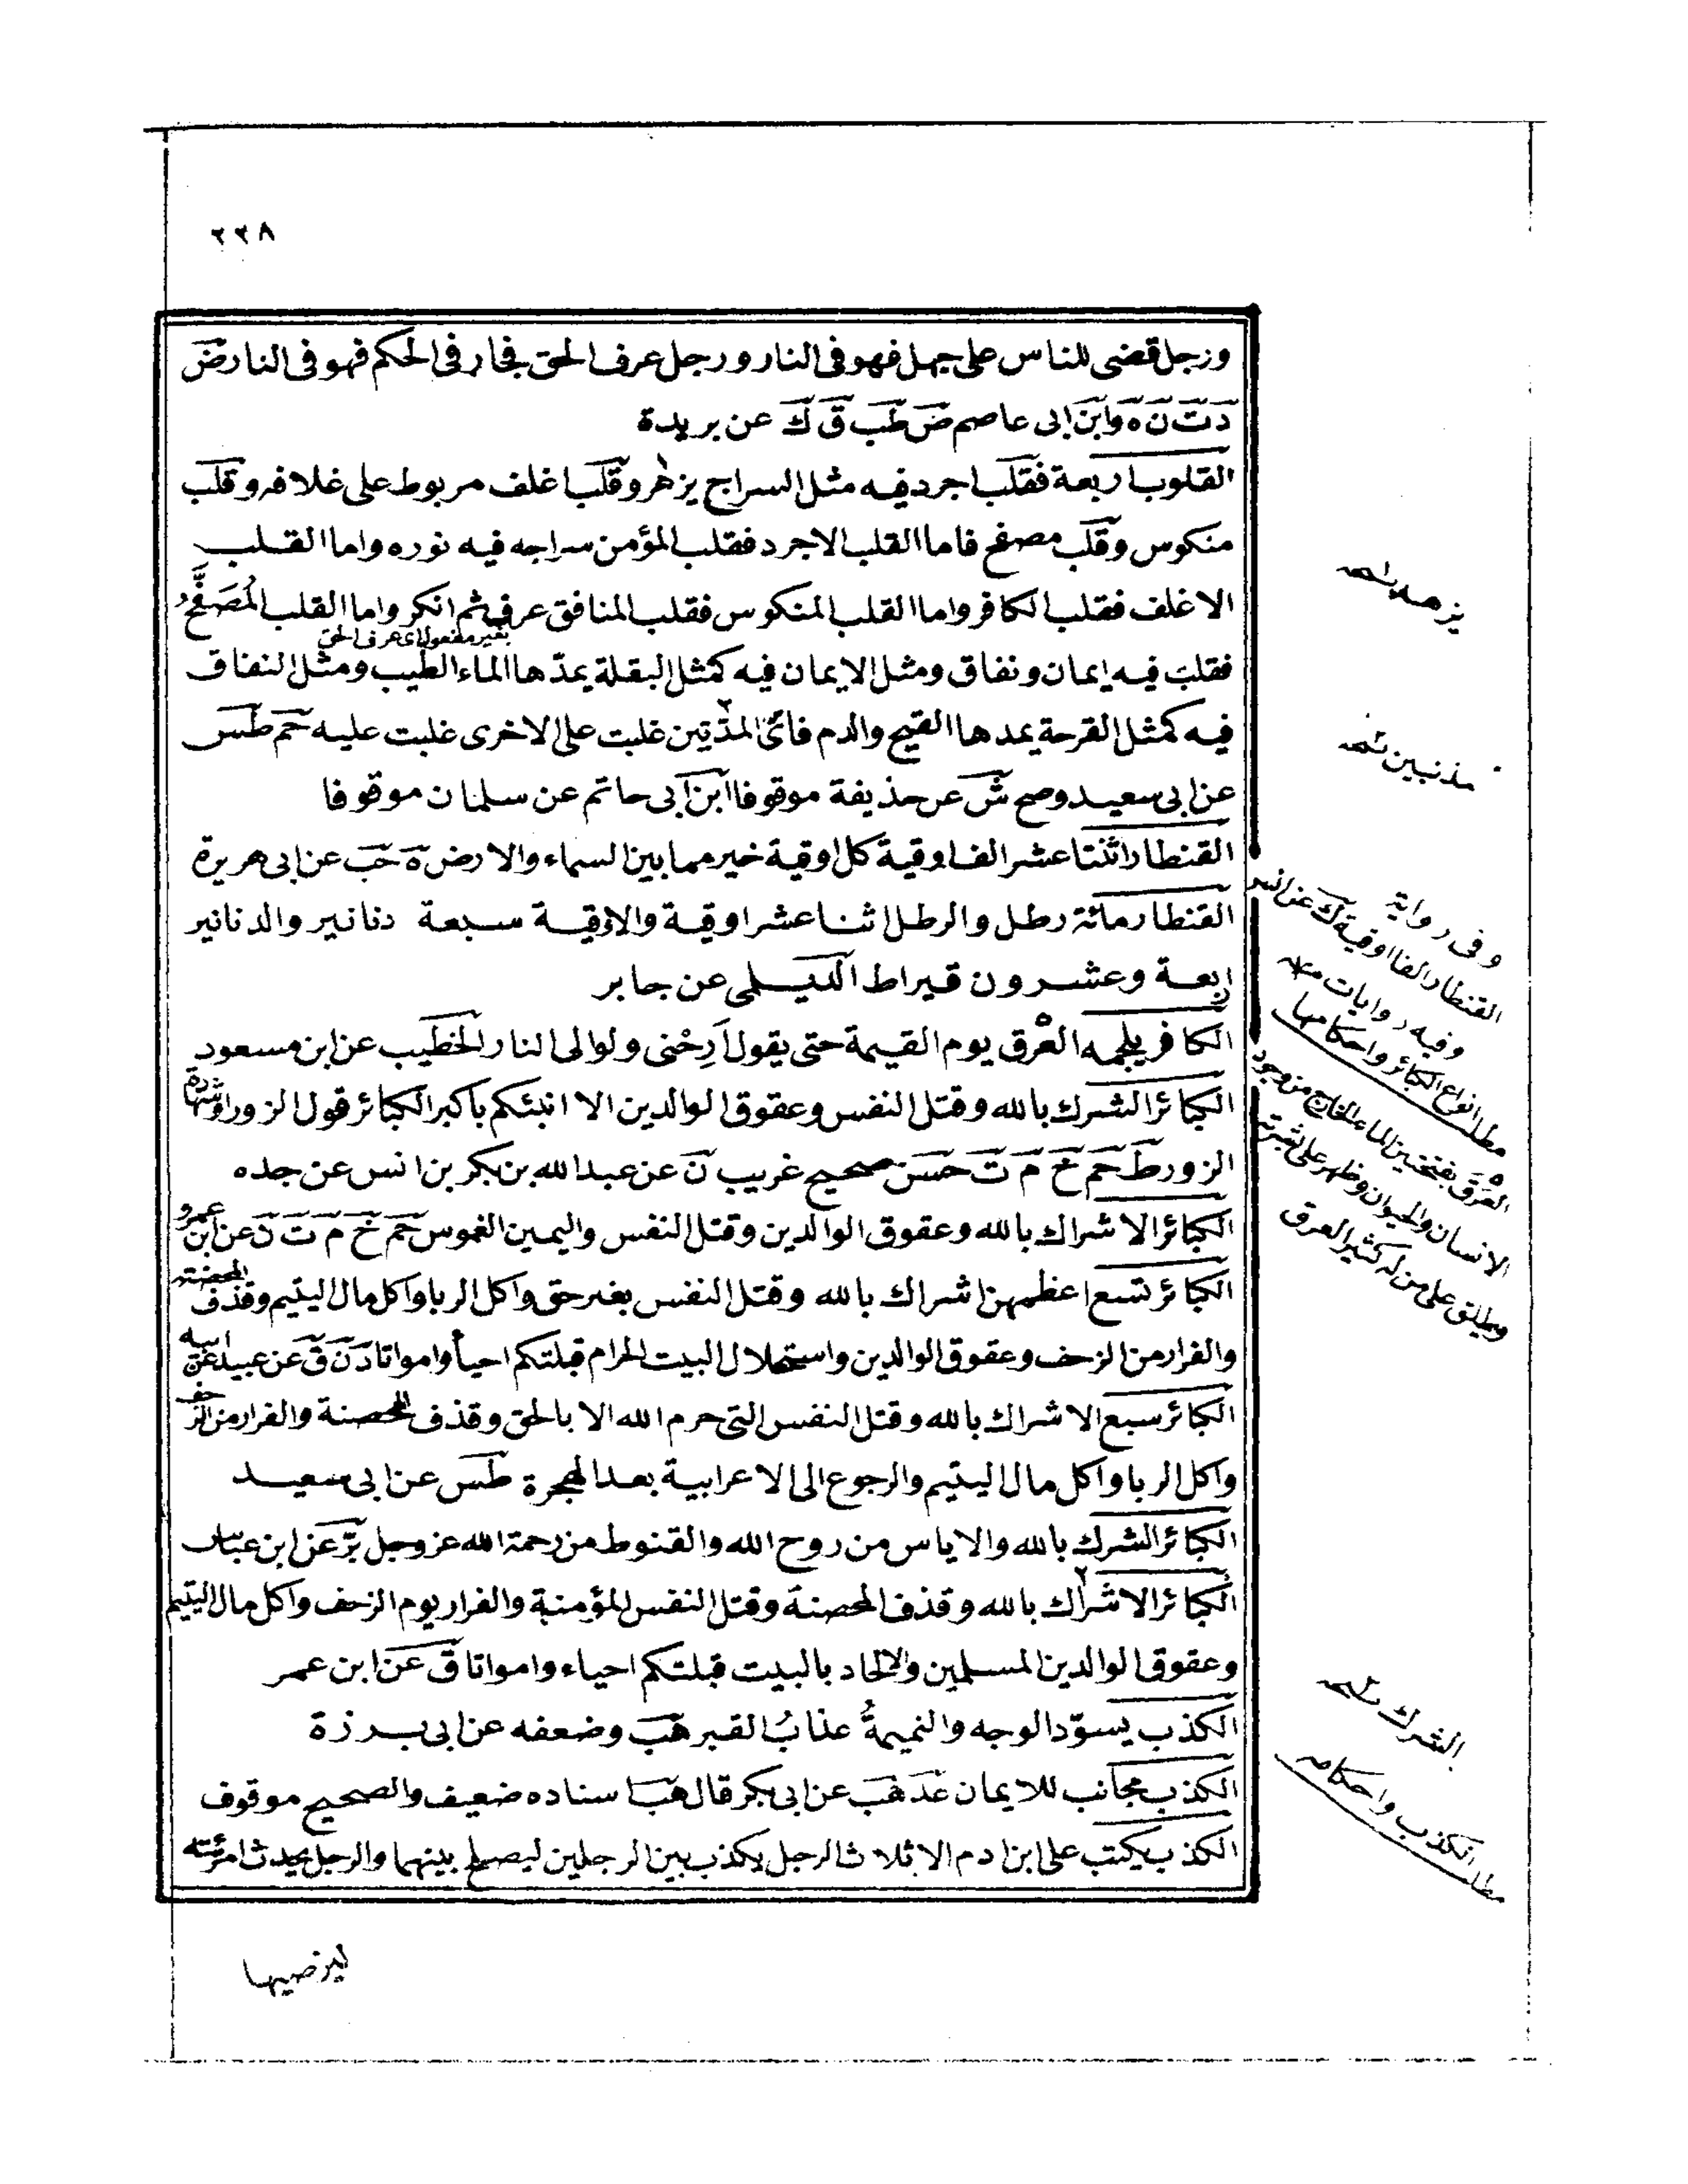 ٢٢٨
ورجل قضى للناس على جهل فهو فى النار ورجل عرف الحق فجار فى الحكم فهو فى النار ض
د ت ن ه وابن ابى عاصم ض طب ق ك عن بريدة
القلوب اربعة فقلب اجرد فيه مثل السراج يزهر وقلب اغلف مربوط على غلافه وقلب
منكوس وقلب مصفح فاما القلب الاجرد فقلب المؤمن سراجه فيه نوره واما القلب
الاغلف فقلب الكافر واما القلب المنكوس فقلب المنافق عرف ثم انكر واما القلب المُصَفَّحُ
بغير مفعول اى عرف الحق
فقلب فيه ايمان ونفاق ومثل الايمان فيه كمثل البقلة يمدّها الماء الطيب ومثل النفاق
فيه كمثل القرحة يمدها القيح والدم فائّ المدّتين غلبت على الاخرى غلبت عليه حم طس
عن ابى سعيد وصح ش عن حذيفة موقوفا ابن ابى حاتم عن سلمان موقوفا
القنطار اثنتا عشر الف اوقية كل اوقية خير مما بين السماء والارض ه حب عن ابى هريرة
القنطار مائة رطل والرطل اثنا عشر اوقية والاوقية سبعة دنانير والدنانير
اربعة وعشرون قيراط الديلمى عن جابر
الكافر يلجمه العرق يوم القيمة حتى يقول اَرِحْنى ولو الى النار الخطيب عن ابن مسعود
الكبائر الشرك بالله وقتل النفس وعقوق الوالدين الا انبئكم باكبر الكبائر قول الزور او شهادة
الزور ط حم خ م ت حسن صحيح غريب ن عن عبدالله بن بكر بن انس عن جده
الكبائر الاشراك بالله وعقوق الوالدين وقتل النفس واليمين الغموس حم خ م ت د عن ابن عمرو
الكبائر تسع اعظمهن اشراك بالله وقتل النفس بغير حق واكل الربا واكل مال اليتيم وقذف المحصنة
والفرار من الزحف وعقوق الوالدين واستحلال البيت الحرام قبلتكم احياً وامواتا د ن ق عن عبيد عن ابيه
الكبائر سبع الاشراك بالله وقتل النفس التى حرم الله الا بالحق وقذف المحصنة والفرار من الزحف
واكل الربا واكل مال اليتيم والرجوع الى الاعرابية بعد الهجرة طس عن ابى سعيد
الكبائر الشرك بالله والاياس من روح الله والقنوط من رحمة الله عز وجل بز عن ابن عباس
الكبائر الاشراك بالله وقذف المحصنة وقتل النفس المؤمنة والفرار يوم الزحف واكل مال اليتيم
وعقوق الوالدين المسلمين والالحاد بالبيت قبلتكم احياء وامواتا ق عن ابن عمر
الكذب يسوّد الوجه والنميمةُ عذابُ القبر هب وضعفه عن ابى برزة
الكذب مجانب للايمان عد هب عن ابى بكر قال هب اسناده ضعيف والصحيح موقوف
الكذب يكتب على ابن ادم الا ثلاث الرجل يكذب بين الرجلين ليصلح بينهما والرجل يحدث امرئته
ليرضيها
مذنبين
وفى رواية
القنطار الفا اوقية ك عن انس
وفيه روايات
مطلب انواع الكبائر واحكامها
العرق بفتحتين الماء الخارج من وجود
الانسان والحيوان وظهر على بشرته
ويطلق على من له كثير العرق
الشرك
مطلب الكذب واحكامه